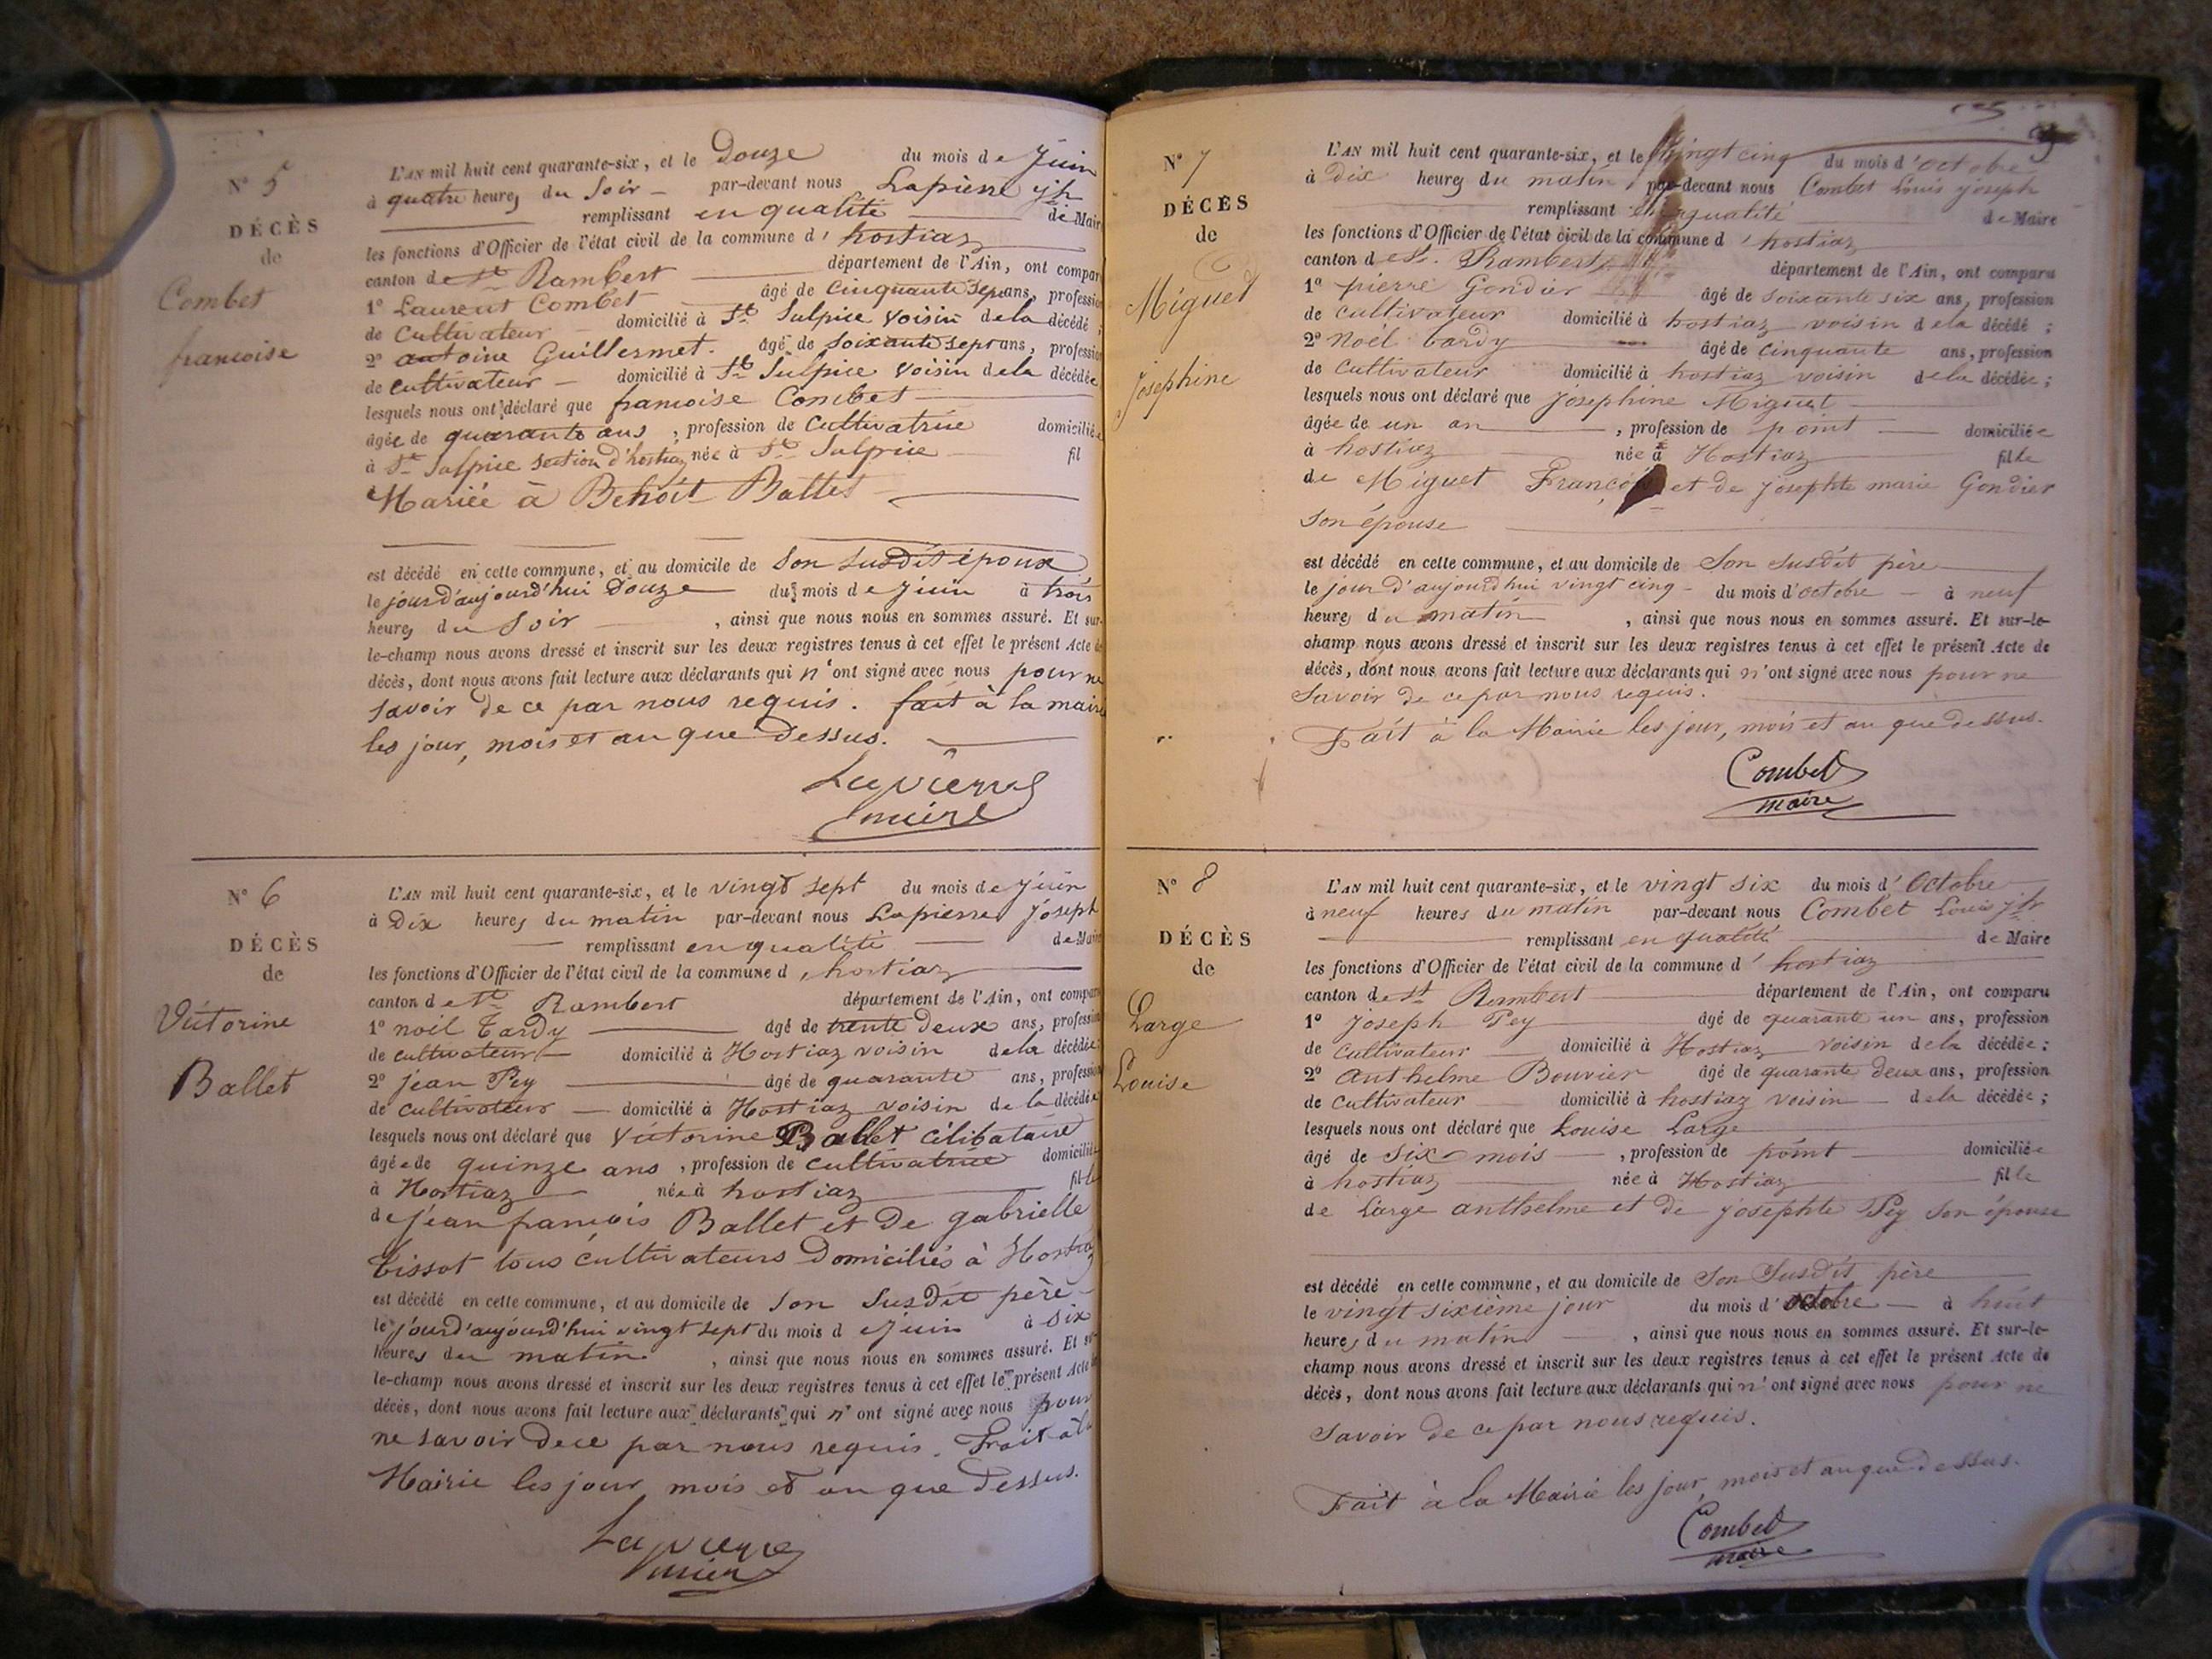 N° 5
DÉCÈS
de
Combet
francoise
L'AN mil huit cent quarante-six, et le Douze du mois de Juin
à quatre heures du Soir - par-devant nous Lapierre jph
remplissant en qualité de Mair
les fonctions d'Officier de l'état civil de la commune d' hostiaz
canton de St Rambert département de l'Ain, ont compar
1° Laurent Combet âgé de cinquante sept ans, professio
de Cultivateur domicilié à St Sulpice voisin de la décédé ;
2° antoine Guillermet. âgé de soixante sept ans, professio
de cultivateur - domicilié à St Sulpice voisin de la décédée
lesquels nous ont déclaré que francoise Combet
âgée de quarante ans, profession de Cultivatrice domiciliée
à St Sulpice section d'hostiaz née à St Sulpice fil
Mariée à Benoit Ballet
est décédé en cette commune, et au domicile de Son susdit époux
le jourd'aujourd'hui Douze du mois de Juin à trois
heures du Soir, ainsi que nous nous en sommes assuré. Et sur-
le-champ nous avons dressé et inscrit sur les deux registres tenus à cet effet le présent Acte de
décès, dont nous avons fait lecture aux déclarants qui n'ont signé avec nous pour ne
savoir de ce par nous requis. fait à la mairie
les jour, mois et an que Dessus.
Lapierre
maire
N° 6
DÉCÈS
de
Victorine
Ballet
L'AN mil huit cent quarante-six, et le vingt sept du mois de Juin
à Dix heures du matin par-devant nous Lapierre Joseph
remplissant en qualité de Mair
les fonctions d'Officier de l'état civil de la commune d' hostiaz
canton de St Rambert département de l'Ain, ont compar
1° noël Tardy âgé de trente Deux ans, professio
de cultivateur - domicilié à Hostiaz voisin de la décédée;
2° jean Pey âgé de quarante ans, professio
de cultivateur - domicilié à Hostiaz voisin de la décédée
lesquels nous ont déclaré que Victorine Ballet célibataire
âgée de quinze ans, profession de cultivatrice domiciliée
à Hostiaz née à hostiaz fille
de jean françois Ballet et De gabrielle
Tissot tous cultivateurs Domiciliés à Hostiaz
est décédé en cette commune, et au domicile de Son Susdit père
le jourd'aujourd'hui vingt sept du mois de Juin à six
heures du matin, ainsi que nous nous en sommes assuré. Et sur-
le-champ nous avons dressé et inscrit sur les deux registres tenus à cet effet le présent Acte de
décès, dont nous avons fait lecture aux déclarants qui n'ont signé avec nous pour
ne savoir de ce par nous requis. Fait à la
Mairie les jour, mois et an que Dessus.
Lapierre
maire
N° 7
DÉCÈS
de
Miguet
Josephine
L'AN mil huit cent quarante-six, et le vingt cinq du mois d'octobre
à Dix heures du matin par-devant nous Combet Louis joseph
remplissant en qualité de Maire
les fonctions d'Officier de l'état civil de la commune d' hostiaz
canton de St. Rambert département de l'Ain, ont comparu
1° pierre Gondier âgé de soixante six ans, profession
de cultivateur domicilié à hostiaz voisin de la décédé ;
2° Noël tardy âgé de cinquante ans, profession
de Cultivateur domicilié à hostiaz voisin de la décédée ;
lesquels nous ont déclaré que Joséphine Miguet
âgée de un an, profession de point domiciliée
à hostiaz née à Hostiaz fille
de Miguet François et de josephte marie Gondier
son épouse
est décédé en cette commune, et au domicile de Son susdit père
le jour d'aujourdhui vingt cinq - du mois d'octobre - à neuf
heures du matin, ainsi que nous nous en sommes assuré. Et sur-le-
champ nous avons dressé et inscrit sur les deux registres tenus à cet effet le présent Acte de
décès, dont nous avons fait lecture aux déclarants qui n'ont signé avec nous pour ne
Savoir de ce par nous requis.
Fait à la Mairie les jour, mois et an que dessus.
Combet
maire
N° 8
DÉCÈS
de
Large
Louise
L'AN mil huit cent quarante-six, et le vingt six du mois d'Octobre
à neuf heures du matin par-devant nous Combet Louis jph
remplissant en qualité de Maire
les fonctions d'Officier de l'état civil de la commune d' hostiaz
canton de St Rambert département de l'Ain, ont comparu
1° Joseph Pey âgé de quarante un ans, profession
de cultivateur domicilié à Hostiaz voisin de la décédée ;
2° Anthelme Bouvier âgé de quarante deux ans, profession
de Cultivateur domicilié à hostiaz voisin - de la décédée ;
lesquels nous ont déclaré que Louise Large
âgé de six mois, profession de point domiciliée
à hostiaz née à Hostiaz fille
de Large anthelme et de josephte Pey son épouse
est décédé en cette commune, et au domicile de Son Susdit père
le vingt sixième jour du mois d'octobre - à huit
heures du matin, ainsi que nous nous en sommes assuré. Et sur-le-
champ nous avons dressé et inscrit sur les deux registres tenus à cet effet le présent Acte de
décès, dont nous avons fait lecture aux déclarants qui n'ont signé avec nous pour ne
Savoir de ce par nous requis.
Fait à la Mairie les jour, mois et an que dessus.
Combet
maire